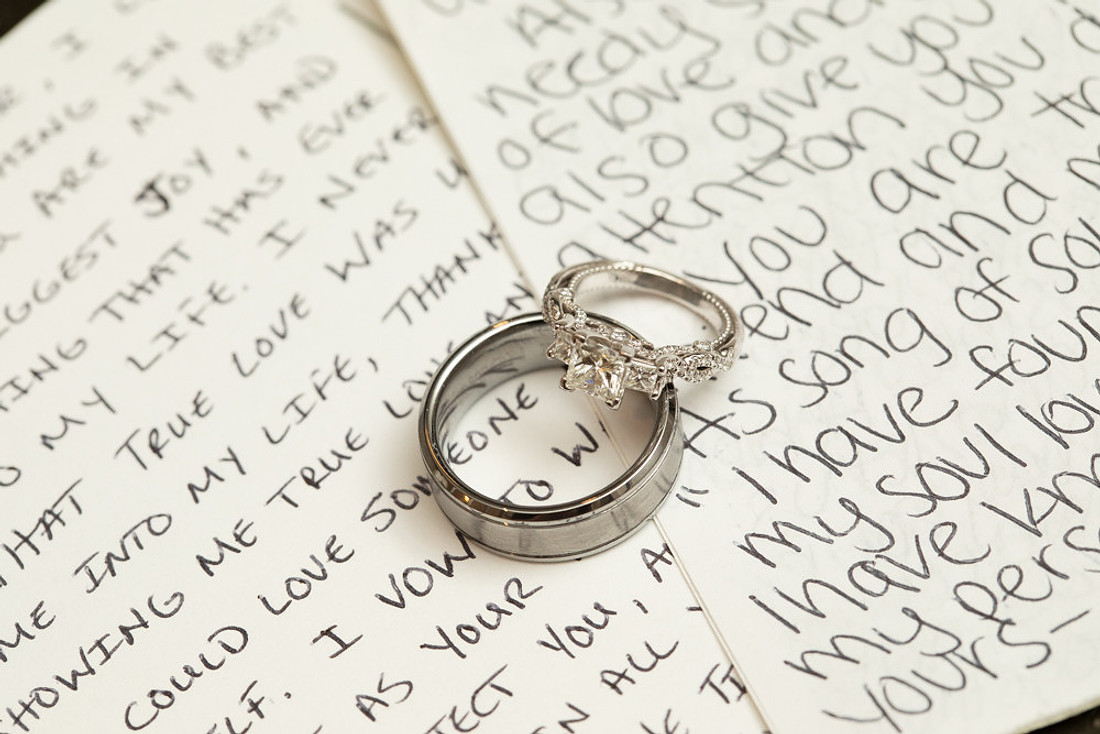 , I
HING IN
ARE MY BEST
IGGEST JOY, AND
TING THAT HAS EVER
O MY LIFE. I NEVER
HAT TRUE LOVE WAS U
ME INTO MY LIFE, THANK
HOWING ME TRUE LOVE AN
COULD LOVE SOMEONE
ELF. I VOW TO W
AS YOUR
TECT YOU, A
ON ALL
TI
Als
needy
of love and
also give you
attention you d
you are th
end and m
As song of So
I have foun
my soul lo
I have kn
my pers
yours-